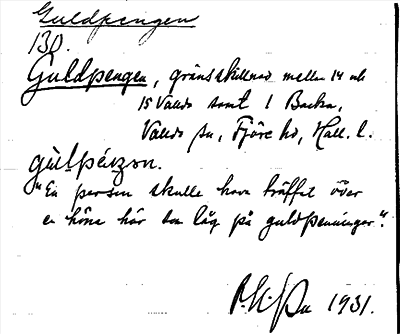 Guldpengen
130.
Guldpengen, gränsskillnad mellan 14 och
15 Vallda samt 1 Backa,
Vallda sn, Fjäre hd, Hall. l.
gùlpéŋ̀ən.
"En person skulle have träffat över
en höna här som låg på guldpenningar".
1931.